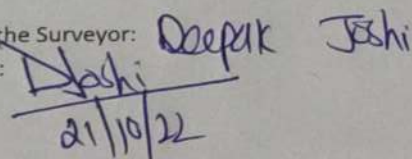 the Surveyor: Deepak Joshi
: DJoshi
21/10/22